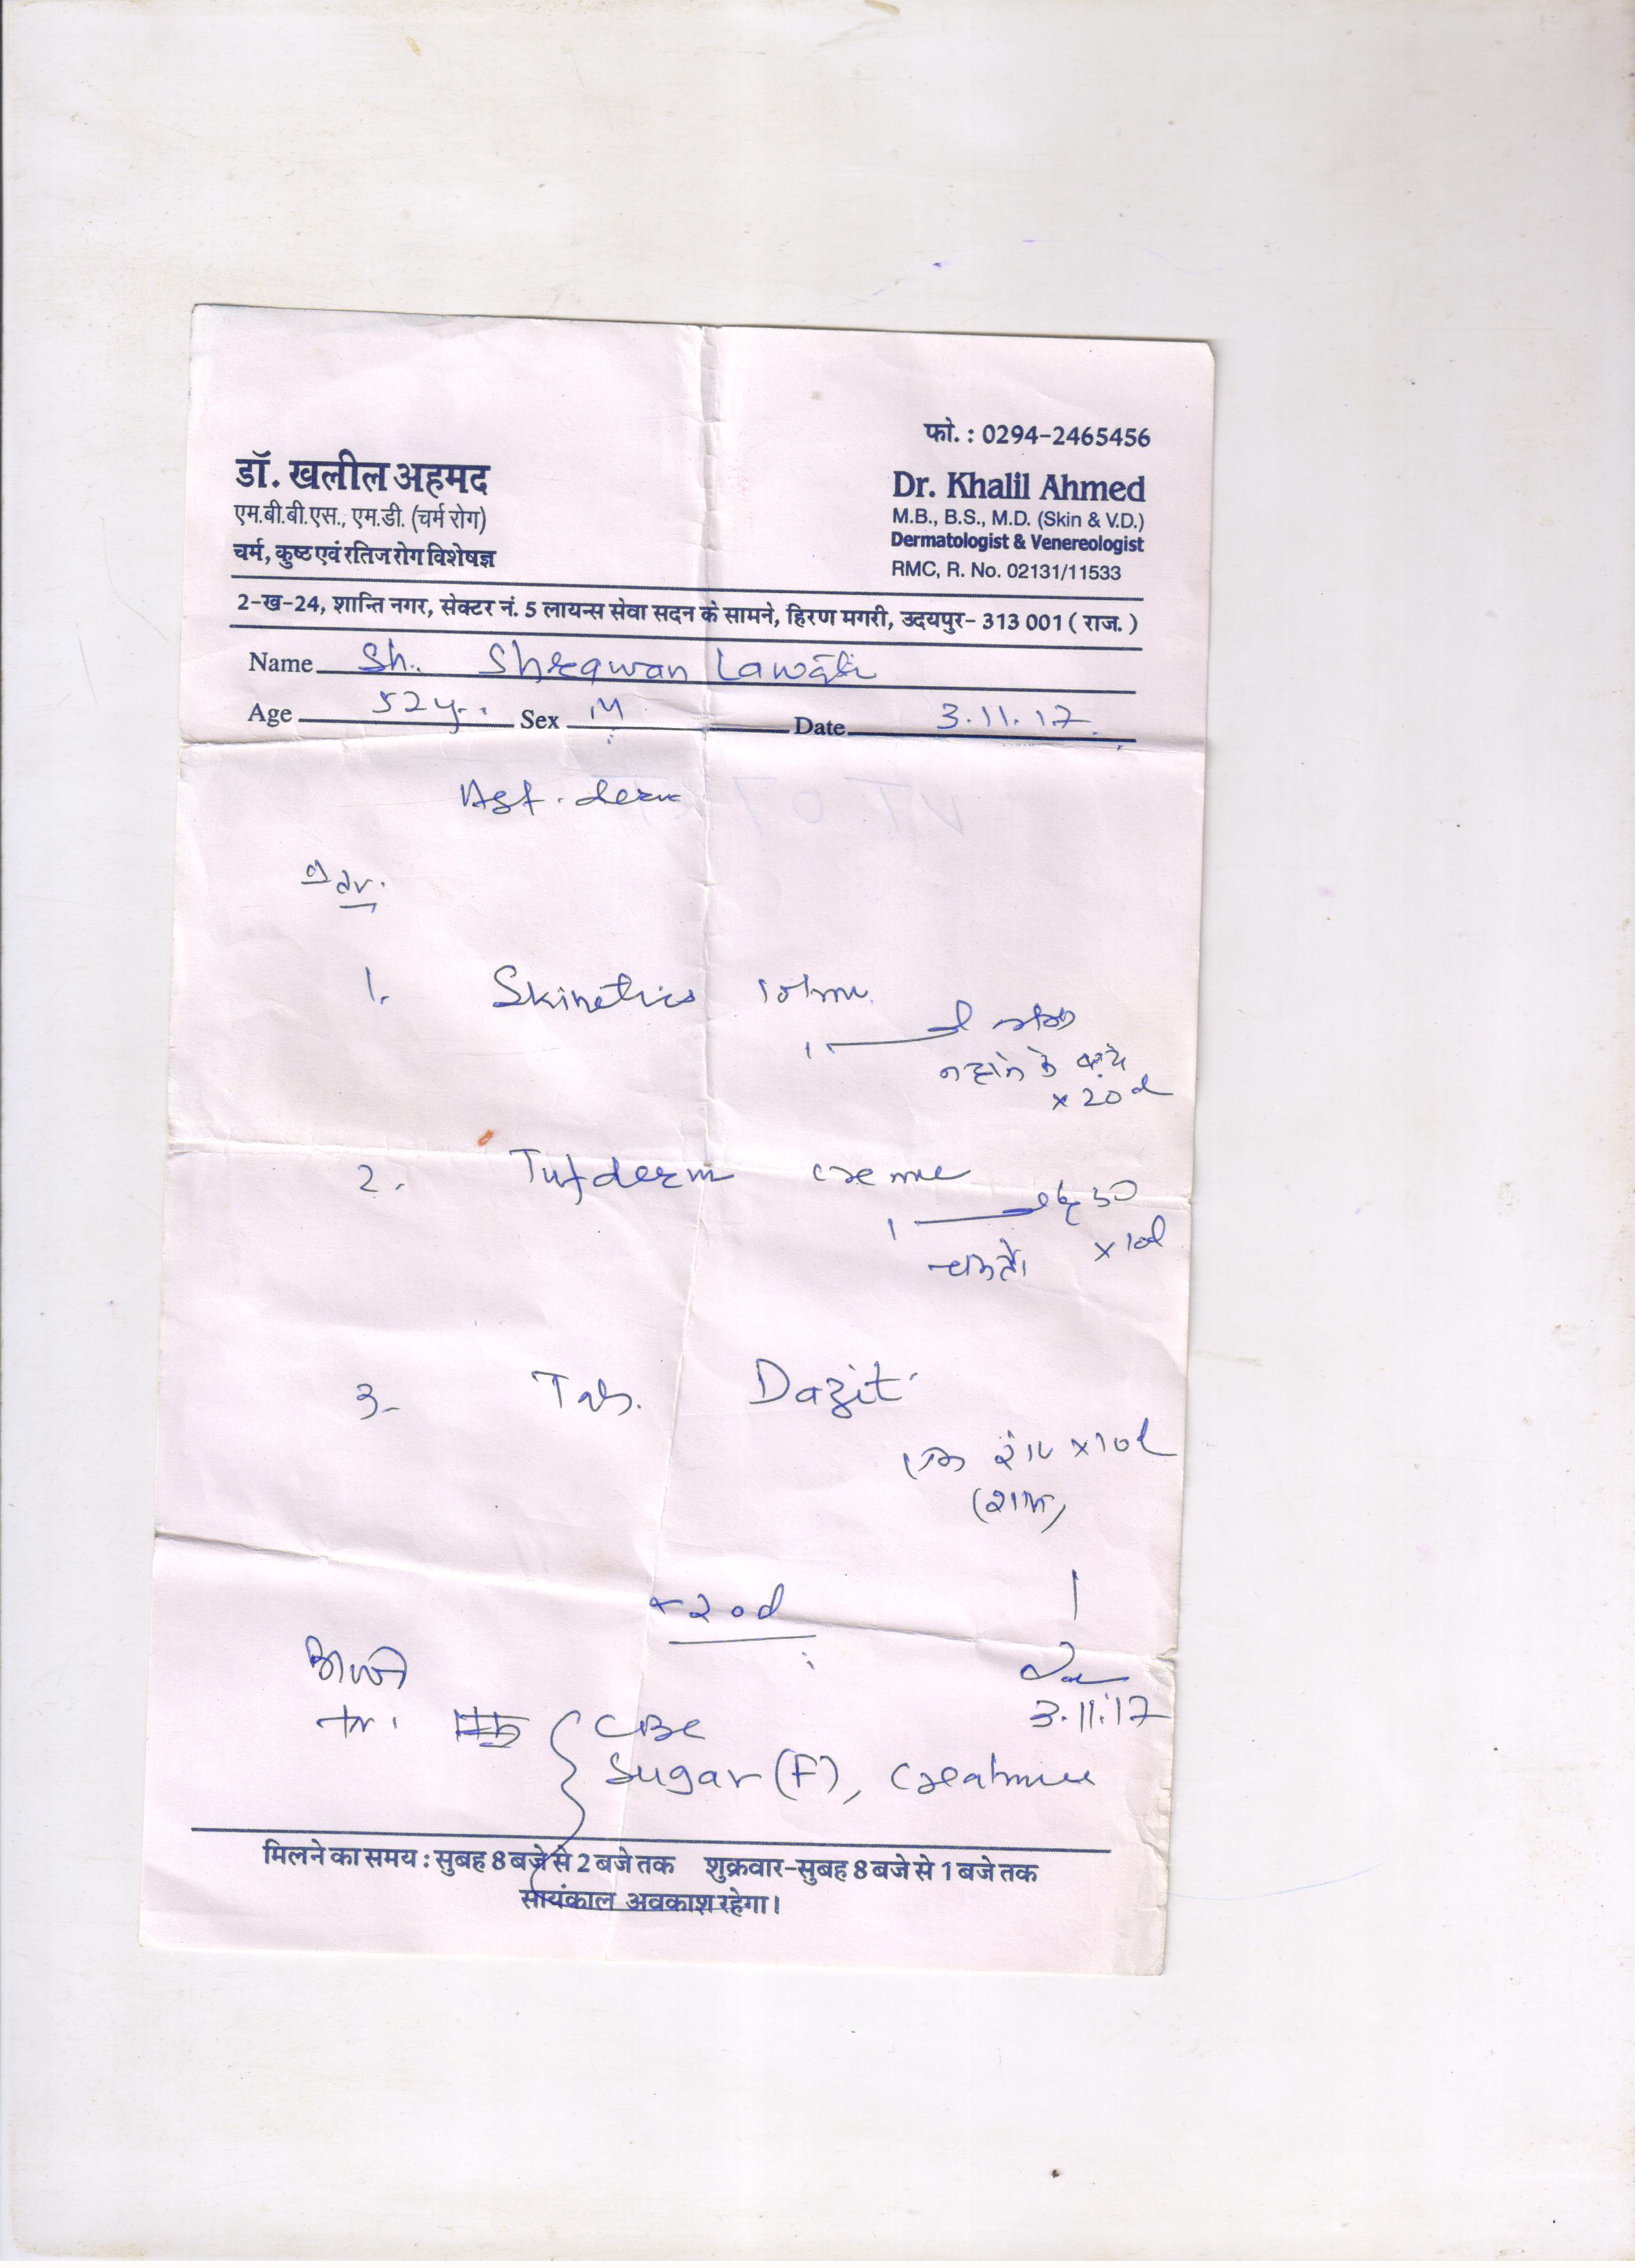 फो. : 0294-2465456
डॉ. खलील अहमद
एम.बी.बी.एस., एम.डी. (चर्म रोग)
चर्म, कुष्ठ एवं रतिज रोग विशेषज्ञ
Dr. Khalil Ahmed
M.B., B.S., M.D. (Skin & V.D.)
Dermatologist & Venereologist
RMC, R. No. 02131/11533
2-ख-24, शान्ति नगर, सेक्टर नं. 5 लायन्स सेवा सदन के सामने, हिरण मगरी, उदयपुर- 313 001 ( राज. )
Name Sh. Shrawan
Age 52y. Sex M Date 3.11.17.
derm
Adv.
1. Skinetics
नहाने के
x 20d
2. Tufderm creme
x 10d
3- Tab. Dazit
x 10d
(शाम)
x 20d
3.11.17
CBC
Sugar (F), Creatinine
मिलने का समय : सुबह 8 बजे से 2 बजे तक शुक्रवार-सुबह 8 बजे से 1 बजे तक
सायंकाल अवकाश रहेगा।